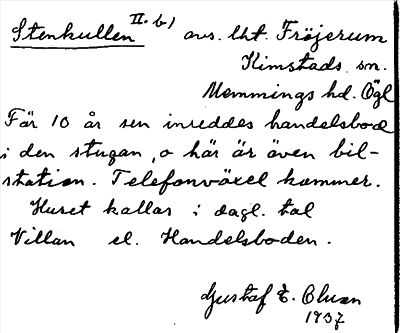 Stenkullen II. b) avs. lht. Fröjerum
Kimstads sn.
Memmings hd. Ögl
För 10 år sen inreddes handelsbod
i den stugan, o här är även bil-
station. Telefonväxel kommer.
Huset kallas i dagl. tal
Villan el. Handelsboden.
Gustaf E. Olson
1937